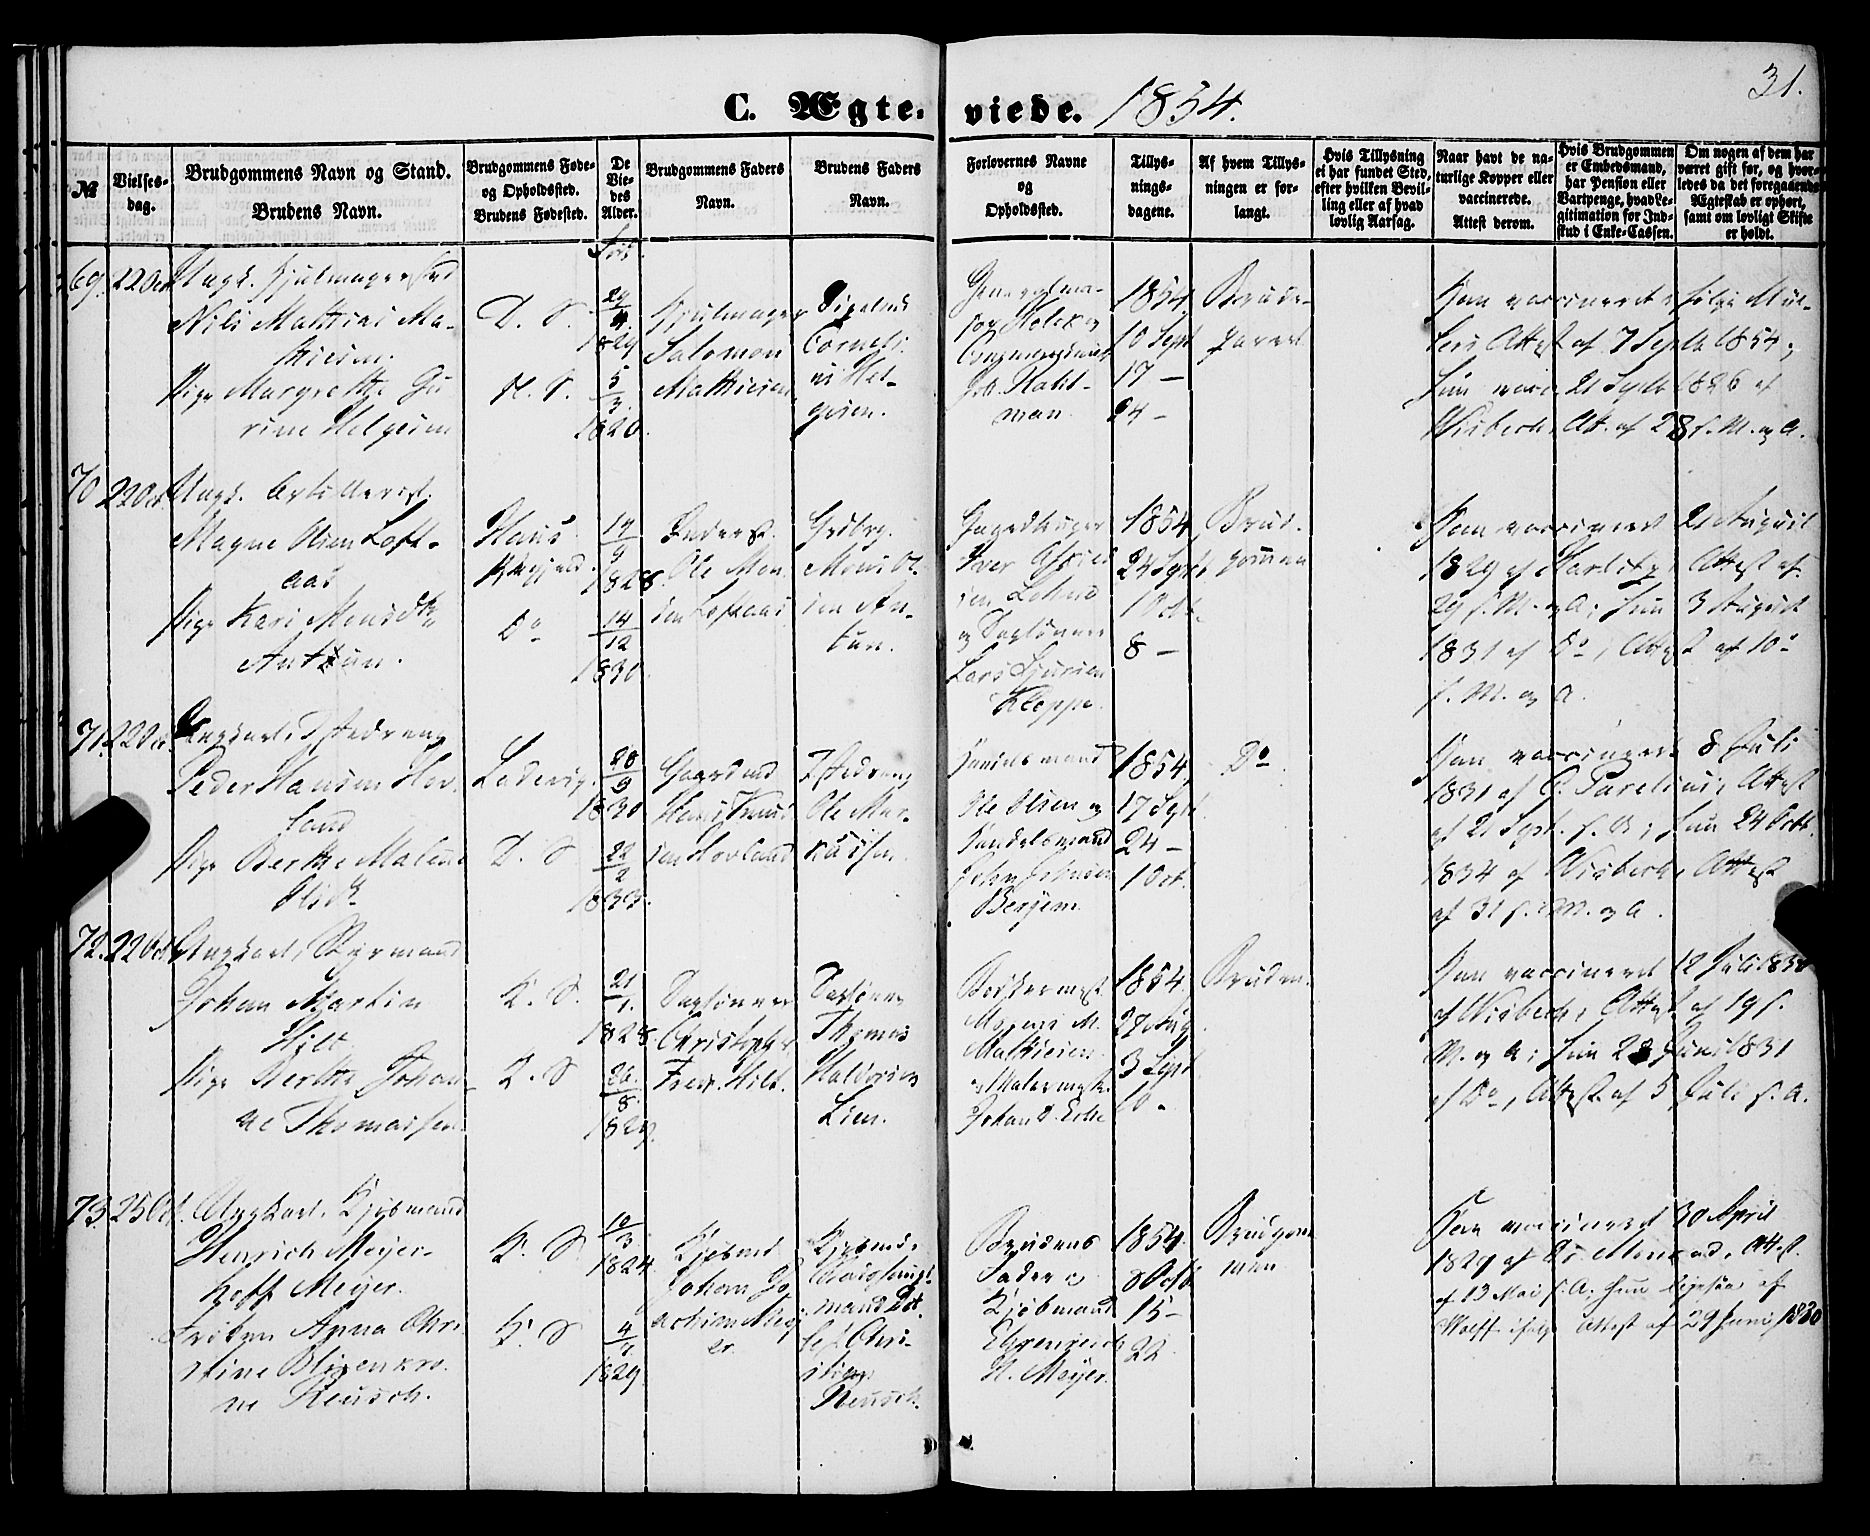 31.
C. Ægte-viede. 1854.
No
Vielses-
dag.
Brudgommens Navn og Stand.
Brudens Navn.
Brudgommens Føde-
og Opholdssted.
Brudens Fødested.
De
Vie-
des
Alder.
Brudgommens Faders
Navn.
Brudens Faders
Navn.
Forlovernes Navne
og
Opholdssted.
Tillys-
nings-
dagene.
Af hvem Tillys-
ningen er for-
langt.
Hvis Tillysning
ei har fundet Sted,
efter hvilken Bevil-
ling eller af hvad
lovlig Aarsag.
Naar havt de na-
turlige Kopper eller
vaccinerede.
Attest derom.
Hvis Brudgommen
er Embedsmand,
har Pension eller
Vartpenge, hvad Le-
gitimation for Ind-
skud i Enke-Cassen.
Om nogen af dem har
været gift før, og hvor-
ledes da det foregaaende
Ægteskab er ophørt,
samt om lovligt Skifte
er holdt.
69. 22 Oct
Ungk. Hjulmagersvd
Nils Mathias Ma-
thiesen.
Pige Margrethe Gu
rine Helgesen
D. S.
N. S.
29/4
1829
5/3
1820.
Hjulmager
Salomon
Mathiesen
Corneli-
us Hel-
gesen.
Generalma-
jor Holck og
man.
1854
10 Sept
17 —
24 —
Brude-
parret
Han vaccineret ifølge Mül-
lers Attest af 7 Septb 1854;
Hun vacc. 21 Septb 1826 af
Wisbech, Att. af 28 s. M. og A.
70 22 Oct
Ungk. Artillerist.
Magne Olsen Loft-
aas
Pige Kari Monsdtr
Antun.
Haus
Præsgjeld.
Do
14/12
1830
1828.
Inderst.
Ole Mon
sen Loftaas
Grdbrg.
Mons Ol-
sen An-
tun.
og Daglønner
Lars Sjursen
Kleppe.
1854
24 Sept
1 Oct.
8 —
Brud-
gommen
Han vaccineret 21 August
1829 af Harlitz, Attest af
29 s. M. og A; Hun 3 August
1831 af Do, Attest af 10de
s. M. og A.
71. 22 Oct.
Ungkarl,
Peder Hansen Hov-
land
Pige Berthe Malene
Ladevig.
D. S
28/9
1830
22/2
1833.
Gaardmd
Hans Knud
sen Hovland
Ole Mar-
kussen
Handelsmand
Ole Olsen og
Handelsmand
Bergen.
1854
17 Sept.
24 —
1 Oct.
Do
Han vaccineret 8 Juli
1831 af C. Parelius, Attest
af 21 Sept. s. A; Hun 24 Octb.
1834 af Wisbech, Attest
af 31 s. M. og A.
72. 22 Oct
Ungkarl, Styrmand
Johan Martin
Hilt.
Pige Berthe Johan-
ne Thomassen.
K. S.
K. S
21/1.
1828
26/8.
1829.
Daglønner
Christopher
Fredr. Hilt.
Dagløner
Thomas
Halvorsen
Lien.
Bødkermest.
Mogens M.
Mathiesen
og Malermest.
Johan D. Ecke
1854.
27 Aug.
3 Sept
10 —
Bruden.
Han vaccineret 12 Juli 1838
af Wisbech, Attest af 19 s.
M. og A; Hun 28 Juni 1831
af Do, Attest af 5 Juli s. A.
73. 25 Oct.
Ungkarl, Kjøbmand
Henrich Meyer-
hoff Meyer.
Frøken Anna Chri-
stine Blixenkro-
ne Reusch.
K. S
K. S
10/3
1824.
4/7.
1829.
Kjøbmd
Johan Jo-
achim Mey-
er.
Kjøbmd,
Chri-
stian
Reusch.
Brudens
Fader og
Kjøbmand
Ehrenreich
H. Meyer.
1854.
8 Octb
15 —
22
Brudgom-
men
Han vaccineret 30 April
1827 af Dr. Monrad, Attest.
af 13 Mai s. A; Hun ligesaa af
Wolff ifølge Attest af 29 Juni 1830